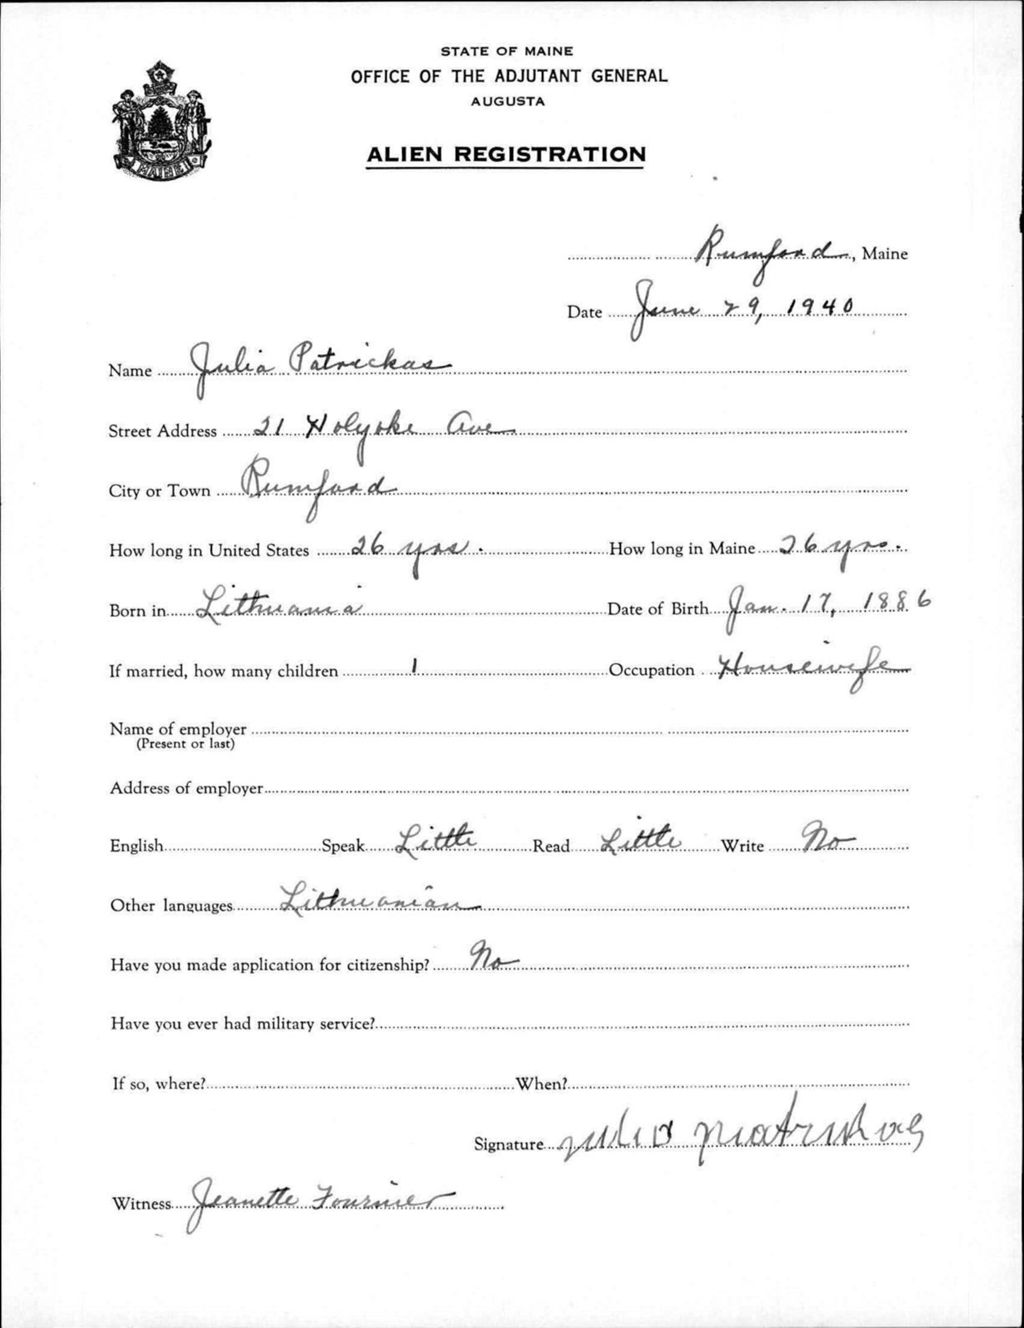 STATE OF MAINE
OFFICE OF THE ADJUTANT GENERAL
AUGUSTA
ALIEN REGISTRATION
MAINE
Rumford, Maine
Date June 29, 1940
Name Julia Patrickas
Street Address 21 Holyoke Ave
City or Town Rumford
How long in United States 26 yrs. How long in Maine 26 yrs.
Born in Lithuania Date of Birth Jan. 17, 1886
If married, how many children 1 Occupation Housewife
Name of employer
(Present or last)
Address of employer
English Speak Little Read Little Write No
Other languages Lithuanian
Have you made application for citizenship? No
Have you ever had military service?
If so, where? When?
Signature
Witness Jeanette Fournier